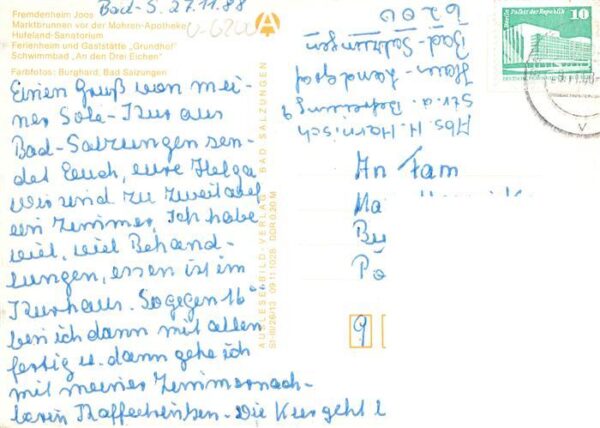 Bad-S. 27.11.88
U-6200
Fremdenheim Joos
Marktbrunnen vor der Mohren-Apotheke
Hufeland-Sanatorium
Ferienheim und Gaststätte „Grundhof"
Schwimmbad „An den Drei Eichen"
Farbfotos: Burghard, Bad Salzungen
Einen Gruß von mei-
ner Sole-Kur aus
Bad-Salzungen sen-
det Euch, eure Helga
wir sind zu zweit auf
ein Zimmer, Ich habe
viel, viel Behand-
lungen, essen ist im
Kurhaus. So gegen 16⁰⁰
bin ich dann mit allen
fertig u. dann gehe ich
mit meiner Zimmernach-
barin Kaffeetrinken. Die Kur geht
A
AUSLESE-BILD-VERLAG BAD SALZUNGEN
09 11 1028 DDR 0,20 M
Abs. H. Harnisch
Str. d. Befreiung 9
Haus-Landgraf
Bad-Salzungen
6200
10
An Fam
Ma
Bu
Pö
9